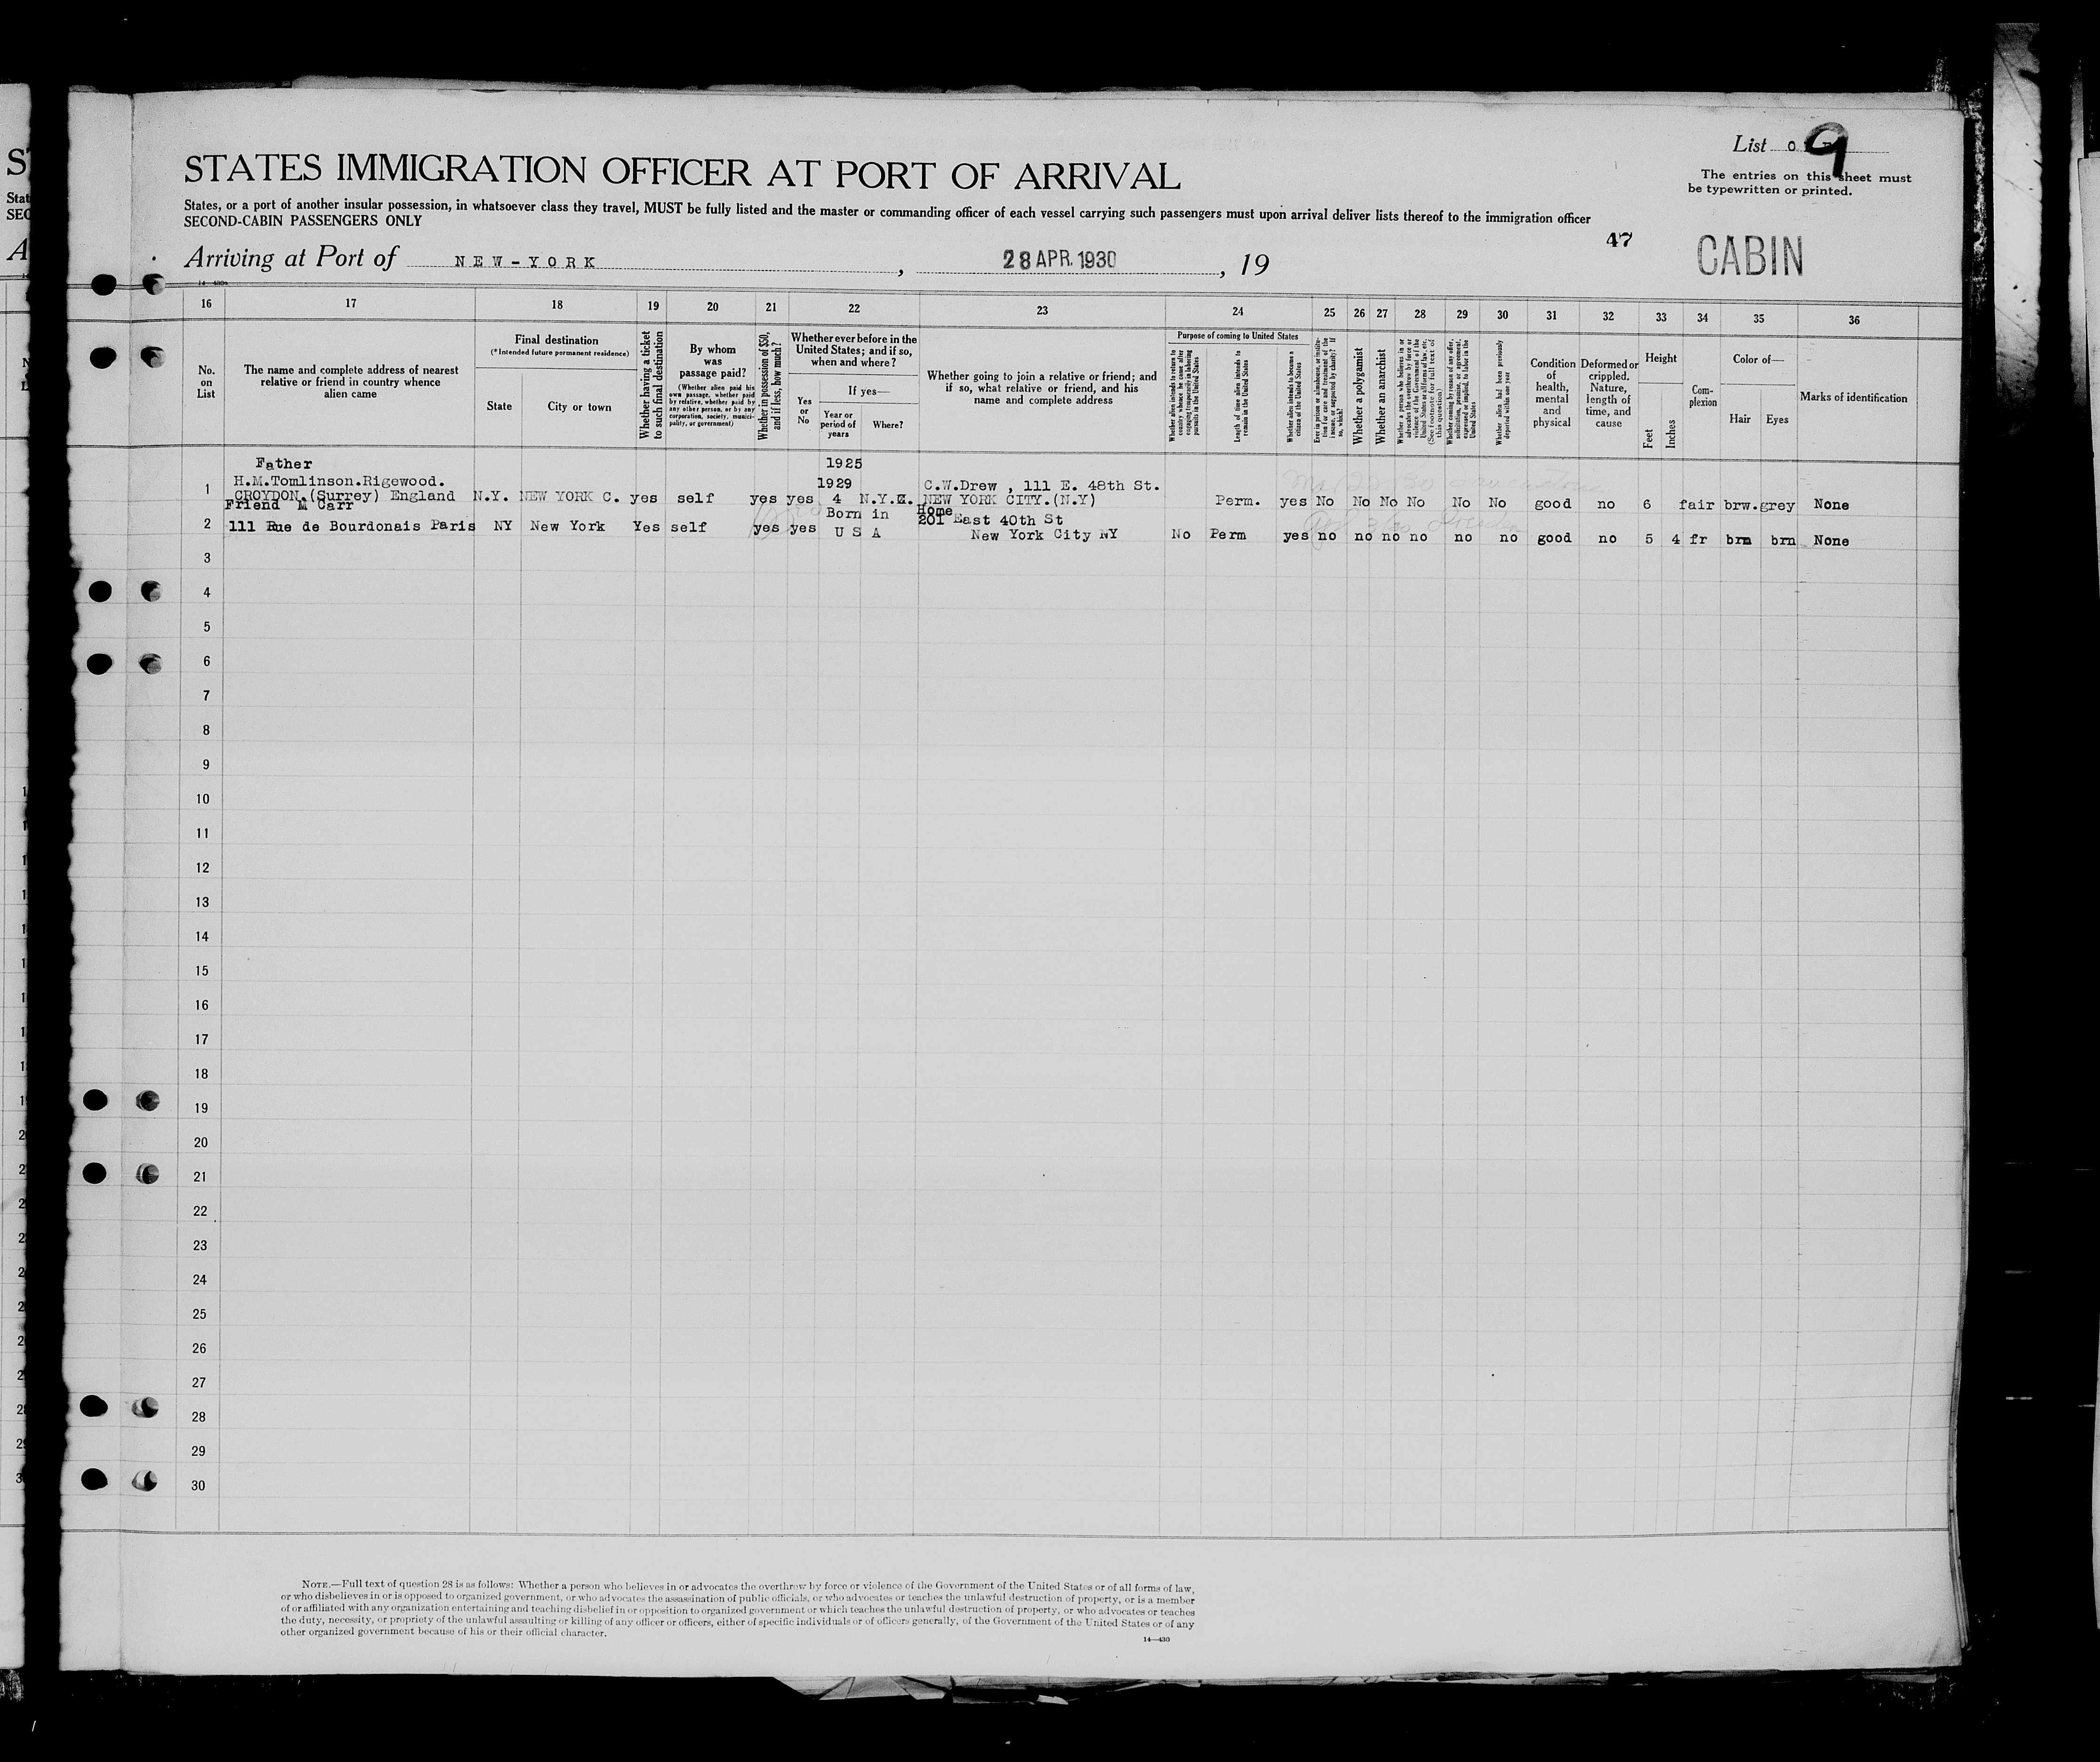 List 9
The entries on this sheet must
be typewritten or printed.
STATES IMMIGRATION OFFICER AT PORT OF ARRIVAL
States, or a port of another insular possession, in whatsoever class they travel, MUST be fully listed and the master or commanding officer of each vessel carrying such passengers must upon arrival deliver lists thereof to the immigration officer
SECOND-CABIN PASSENGERS ONLY
47
CABIN
Arriving at Port of NEW-YORK, 28 APR. 1930, 19
16 17 18 19 20 21 22 23 24 25 26 27 28 29 30 31 32 33 34 35 36
No. on List
The name and complete address of nearest relative or friend in country whence alien came
Final destination
(*Intended future permanent residence)
State
City or town
Whether having a ticket to such final destination
By whom was passage paid?
(Whether alien paid his own passage, whether paid by relative, whether paid by any other person, or by any corporation, society, municipality, or government)
Whether in possession of $50, and if less, how much?
Whether ever before in the United States; and if so, when and where?
Yes or No
If yes—
Year or period of years
Where?
Whether going to join a relative or friend; and if so, what relative or friend, and his name and complete address
Purpose of coming to United States
Whether alien intends to return to country whence he came after engaging temporarily in laboring pursuits in the United States
Length of time alien intends to remain in the United States
Whether alien intends to become a citizen of the United States
Ever in prison or almshouse, or institution for care and treatment of the insane, or supported by charity? If so, which?
Whether a polygamist
Whether an anarchist
Whether a person who believes in or advocates the overthrow by force or violence of the Government of the United States or all forms of law, etc. (See footnote for full text of this question)
Whether coming by reason of any offer, solicitation, promise, or agreement, expressed or implied, to labor in the United States
Whether alien had been previously deported within one year
Condition of health, mental and physical
Deformed or crippled. Nature, length of time, and cause
Height
Feet
Inches
Complexion
Color of—
Hair
Eyes
Marks of identification
Father 1925
H.M.Tomlinson.Rigewood. 1929 C.W.Drew , 111 E. 48th St.
1 CROYDON.(Surrey) England N.Y. NEW YORK C. yes self yes yes 4 N.Y. NEW YORK CITY.(N.Y) Perm. yes No No No No No No good no 6 fair brw. grey None
Friend M Carr Born in Home
2 111 Rue de Bourdonais Paris NY New York Yes self yes yes U S A 201 East 40th St
New York City NY No Perm yes no no no no no no good no 5 4 fr brn brn None
3
4
5
6
7
8
9
10
11
12
13
14
15
16
17
18
19
20
21
22
23
24
25
26
27
28
29
30
NOTE.—Full text of question 28 is as follows: Whether a person who believes in or advocates the overthrow by force or violence of the Government of the United States or of all forms of law,
or who disbelieves in or is opposed to organized government, or who advocates the assassination of public officials, or who advocates or teaches the unlawful destruction of property, or is a member
of or affiliated with any organization entertaining and teaching disbelief in or opposition to organized government or which teaches the unlawful destruction of property, or who advocates or teaches
the duty, necessity, or propriety of the unlawful assaulting or killing of any officer or officers, either of specific individuals or of officers generally, of the Government of the United States or of any
other organized government because of his or their official character.
14—430